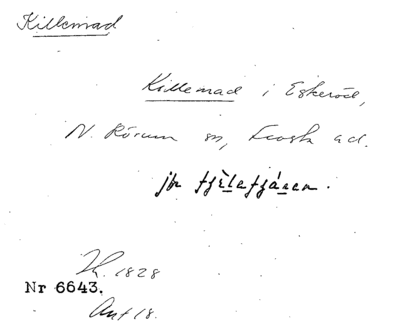 Killemad
Killemad i Eskeröd,
N. Rörum sn, Frosta hd.
jfr
Th. 1828
Nr 6643.
Ant 18.